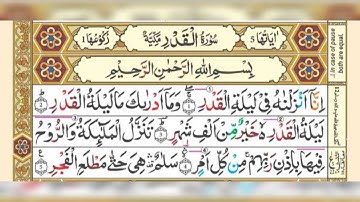 اٰیَاتُهَا ٥ سُوْرَةُ الْقَدْرِ مَكِّیَّةٌ رُكُوْعُهَا ١
بِسْمِ اللهِ الرَّحْمٰنِ الرَّحِیْمِ
اِنَّاۤ اَنْزَلْنٰهُ فِیْ لَیْلَةِ الْقَدْرِ ۝١ وَمَاۤ اَدْرٰىكَ مَا لَیْلَةُ الْقَدْرِ ۝٢
لَیْلَةُ الْقَدْرِ ۙ خَیْرٌ مِّنْ اَلْفِ شَهْرٍ ۝٣ تَنَزَّلُ الْمَلٰٓىِٕكَةُ وَالرُّوْحُ
فِیْهَا بِاِذْنِ رَبِّهِمْ ۚ مِنْ كُلِّ اَمْرٍ ۝٤ سَلٰمٌ ۛ هِیَ حَتّٰى مَطْلَعِ الْفَجْرِ ۝٥
in case of pause
both are equal